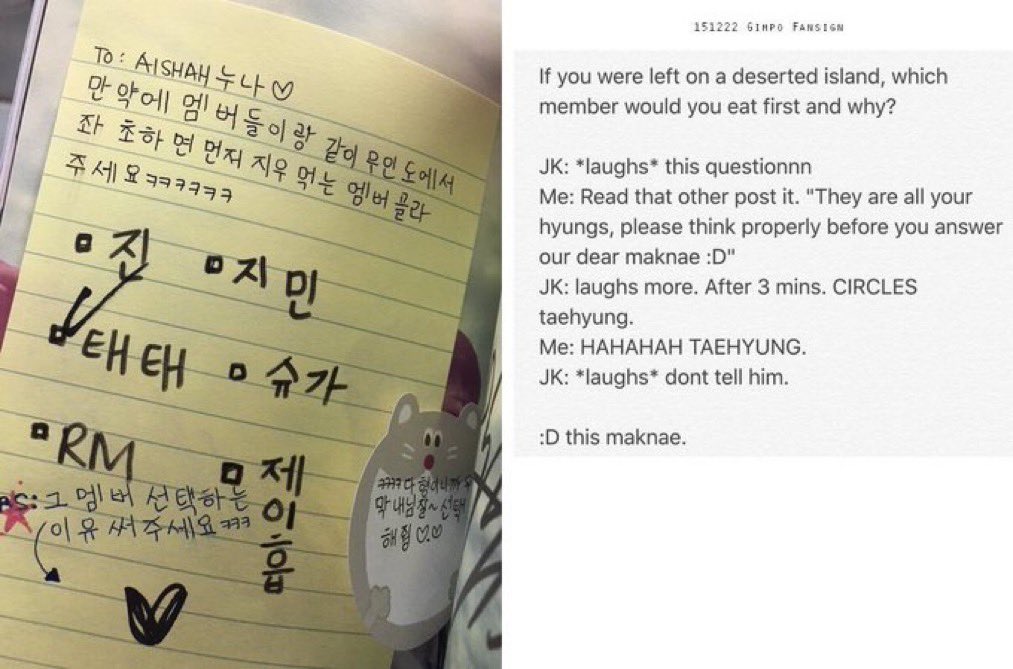 To: AISHAH 누나 ♡
만약에 멤버들이랑 같이 무인도에서
좌초하면 먼저 지우 먹는 멤버 골라
주세요ㅋㅋㅋㅋㅋㅋ
진 지민
태태 슈가
RM 제이홉
PS: 그 멤버 선택하는
이유 써주세요ㅋㅋㅋ
ㅋㅋㅋㅋ다
막내님 잘~ 선택
해줭 ♡.♡
151222 GIMPO FANSIGN
If you were left on a deserted island, which
member would you eat first and why?
JK: *laughs* this questionnn
Me: Read that other post it. "They are all your
hyungs, please think properly before you answer
our dear maknae :D"
JK: laughs more. After 3 mins. CIRCLES
taehyung.
Me: HAHAHAH TAEHYUNG.
JK: *laughs* dont tell him.
:D this maknae.